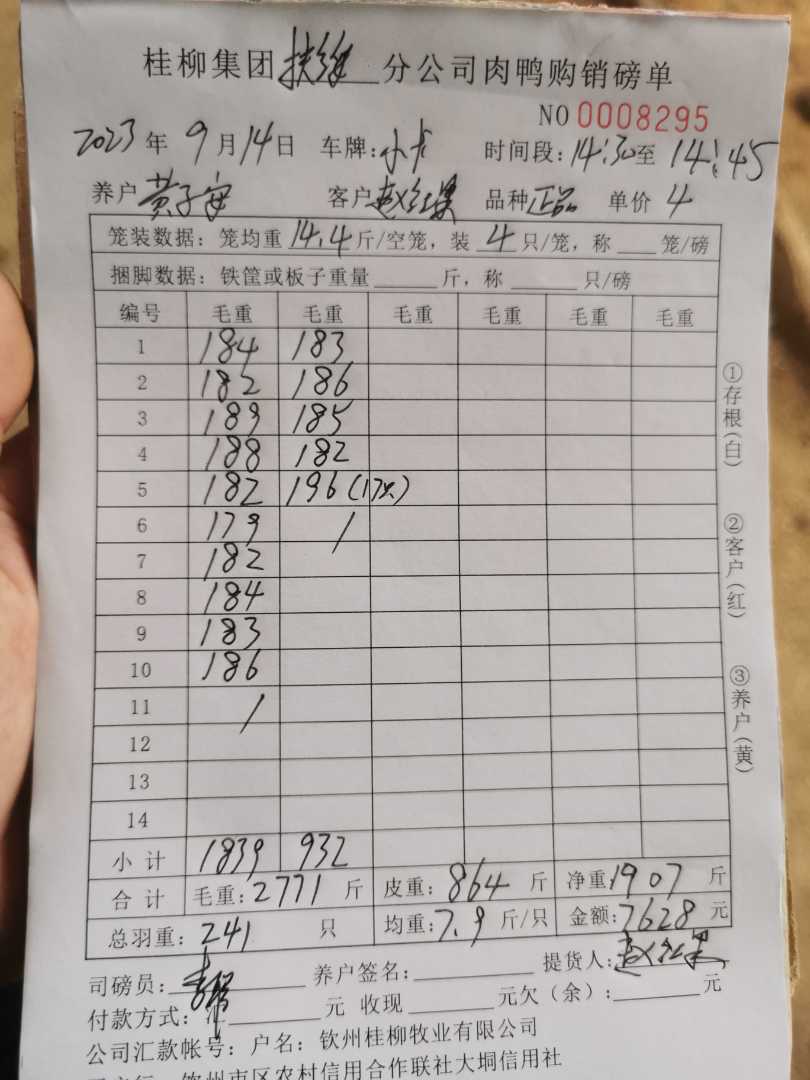 桂柳集团扶绥分公司肉鸭购销磅单
NO 0008295
2023年9月14日 车牌:小卡 时间段:14:30至14:45
养户黄子安 客户赵红果 品种正品 单价4
笼装数据:笼均重14.4斤/空笼,装4只/笼,称___笼/磅
捆脚数据:铁筐或板子重量______斤,称______只/磅
编号 毛重 毛重 毛重 毛重 毛重 毛重
1 184 183
2 182 186
3 189 185
4 188 182
5 182 196(17只)
6 179 /
7 182
8 184
9 183
10 186
11 /
12
13
14
小计 1839 932
合计 毛重:2771斤 皮重:864斤 净重:1907斤
总羽重:241只 均重:7.9斤/只 金额:7628元
司磅员: 养户签名:________ 提货人:赵红果
付款方式:汇______元 收现______元欠(余):______元
公司汇款帐号:户名:钦州桂柳牧业有限公司
钦州市区农村信用合作联社大垌信用社
①存根(白)
②客户(红)
③养户(黄)